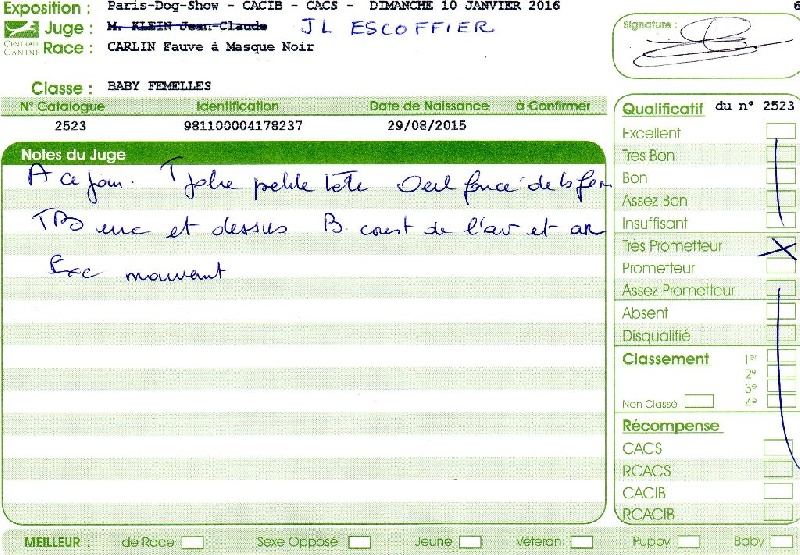 Exposition : Paris-Dog-Show - CACIB - CACS - DIMANCHE 10 JANVIER 2016 6
Juge : M. KLEIN Jean-Claude JL ESCOFFIER
CENTRALE CANINE Race : CARLIN Fauve à Masque Noir
Signature :
Classe : BABY FEMELLES
N° Catalogue Identification Date de Naissance à Confirmer
2523 981100004178237 29/08/2015
Notes du Juge
A ce jour. T jolie petite tête Oeil foncé de la
TB enc et dessus B. const de l'av et ar
Exc mouvant
Qualificatif du n° 2523
Excellent
Tres Bon
Bon
Assez Bon
Insuffisant
Très Prometteur X
Prometteur
Assez Prometteur
Absent
Disqualifié
Classement 1er
2e
3e
Non Classé 4e
Récompense
CACS
RCACS
CACIB
RCACIB
MEILLEUR : de Race Sexe Opposé Jeune Vétéran Puppy Baby